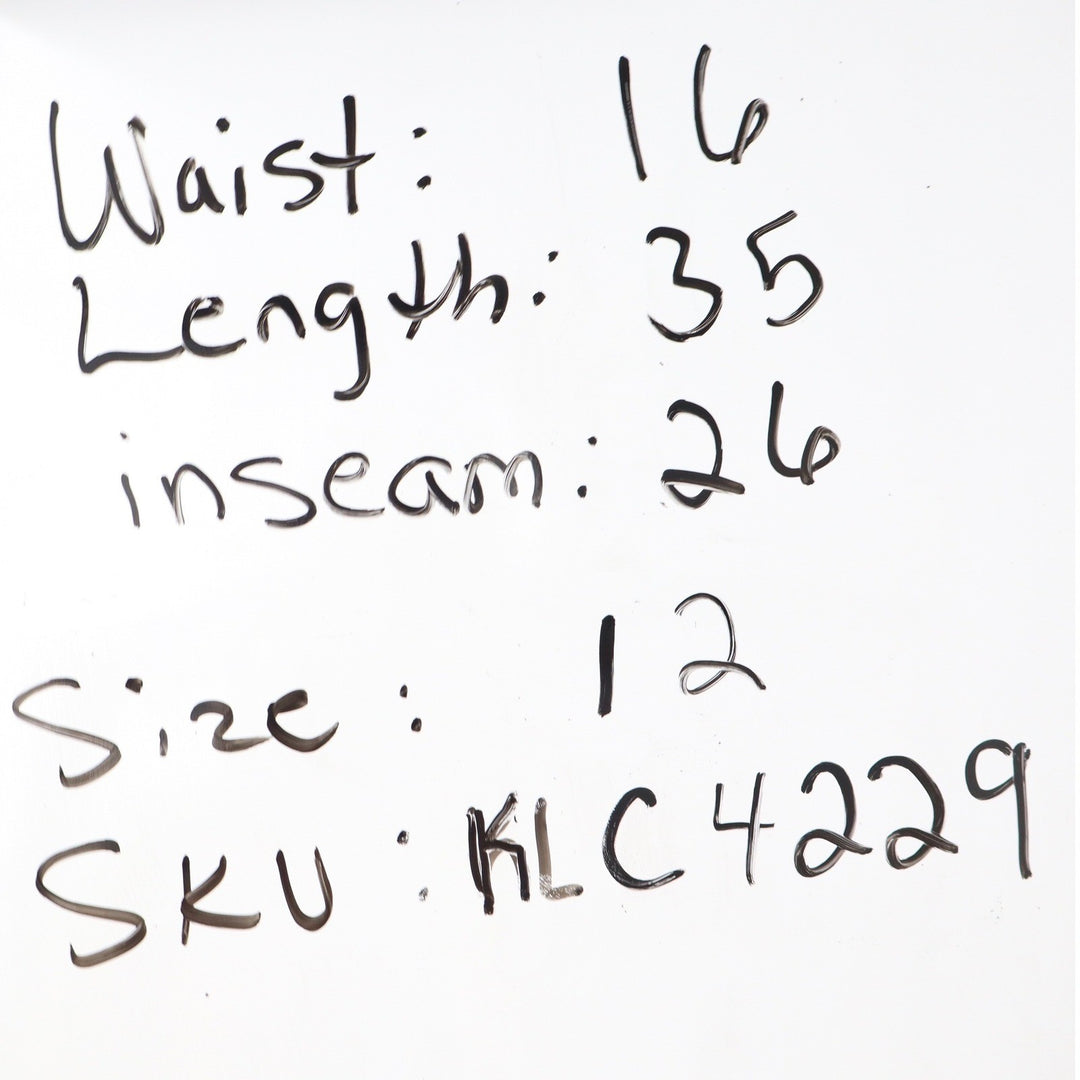 Waist: 16
Length: 35
inseam: 26
Size: 12
SKU: KLC4229